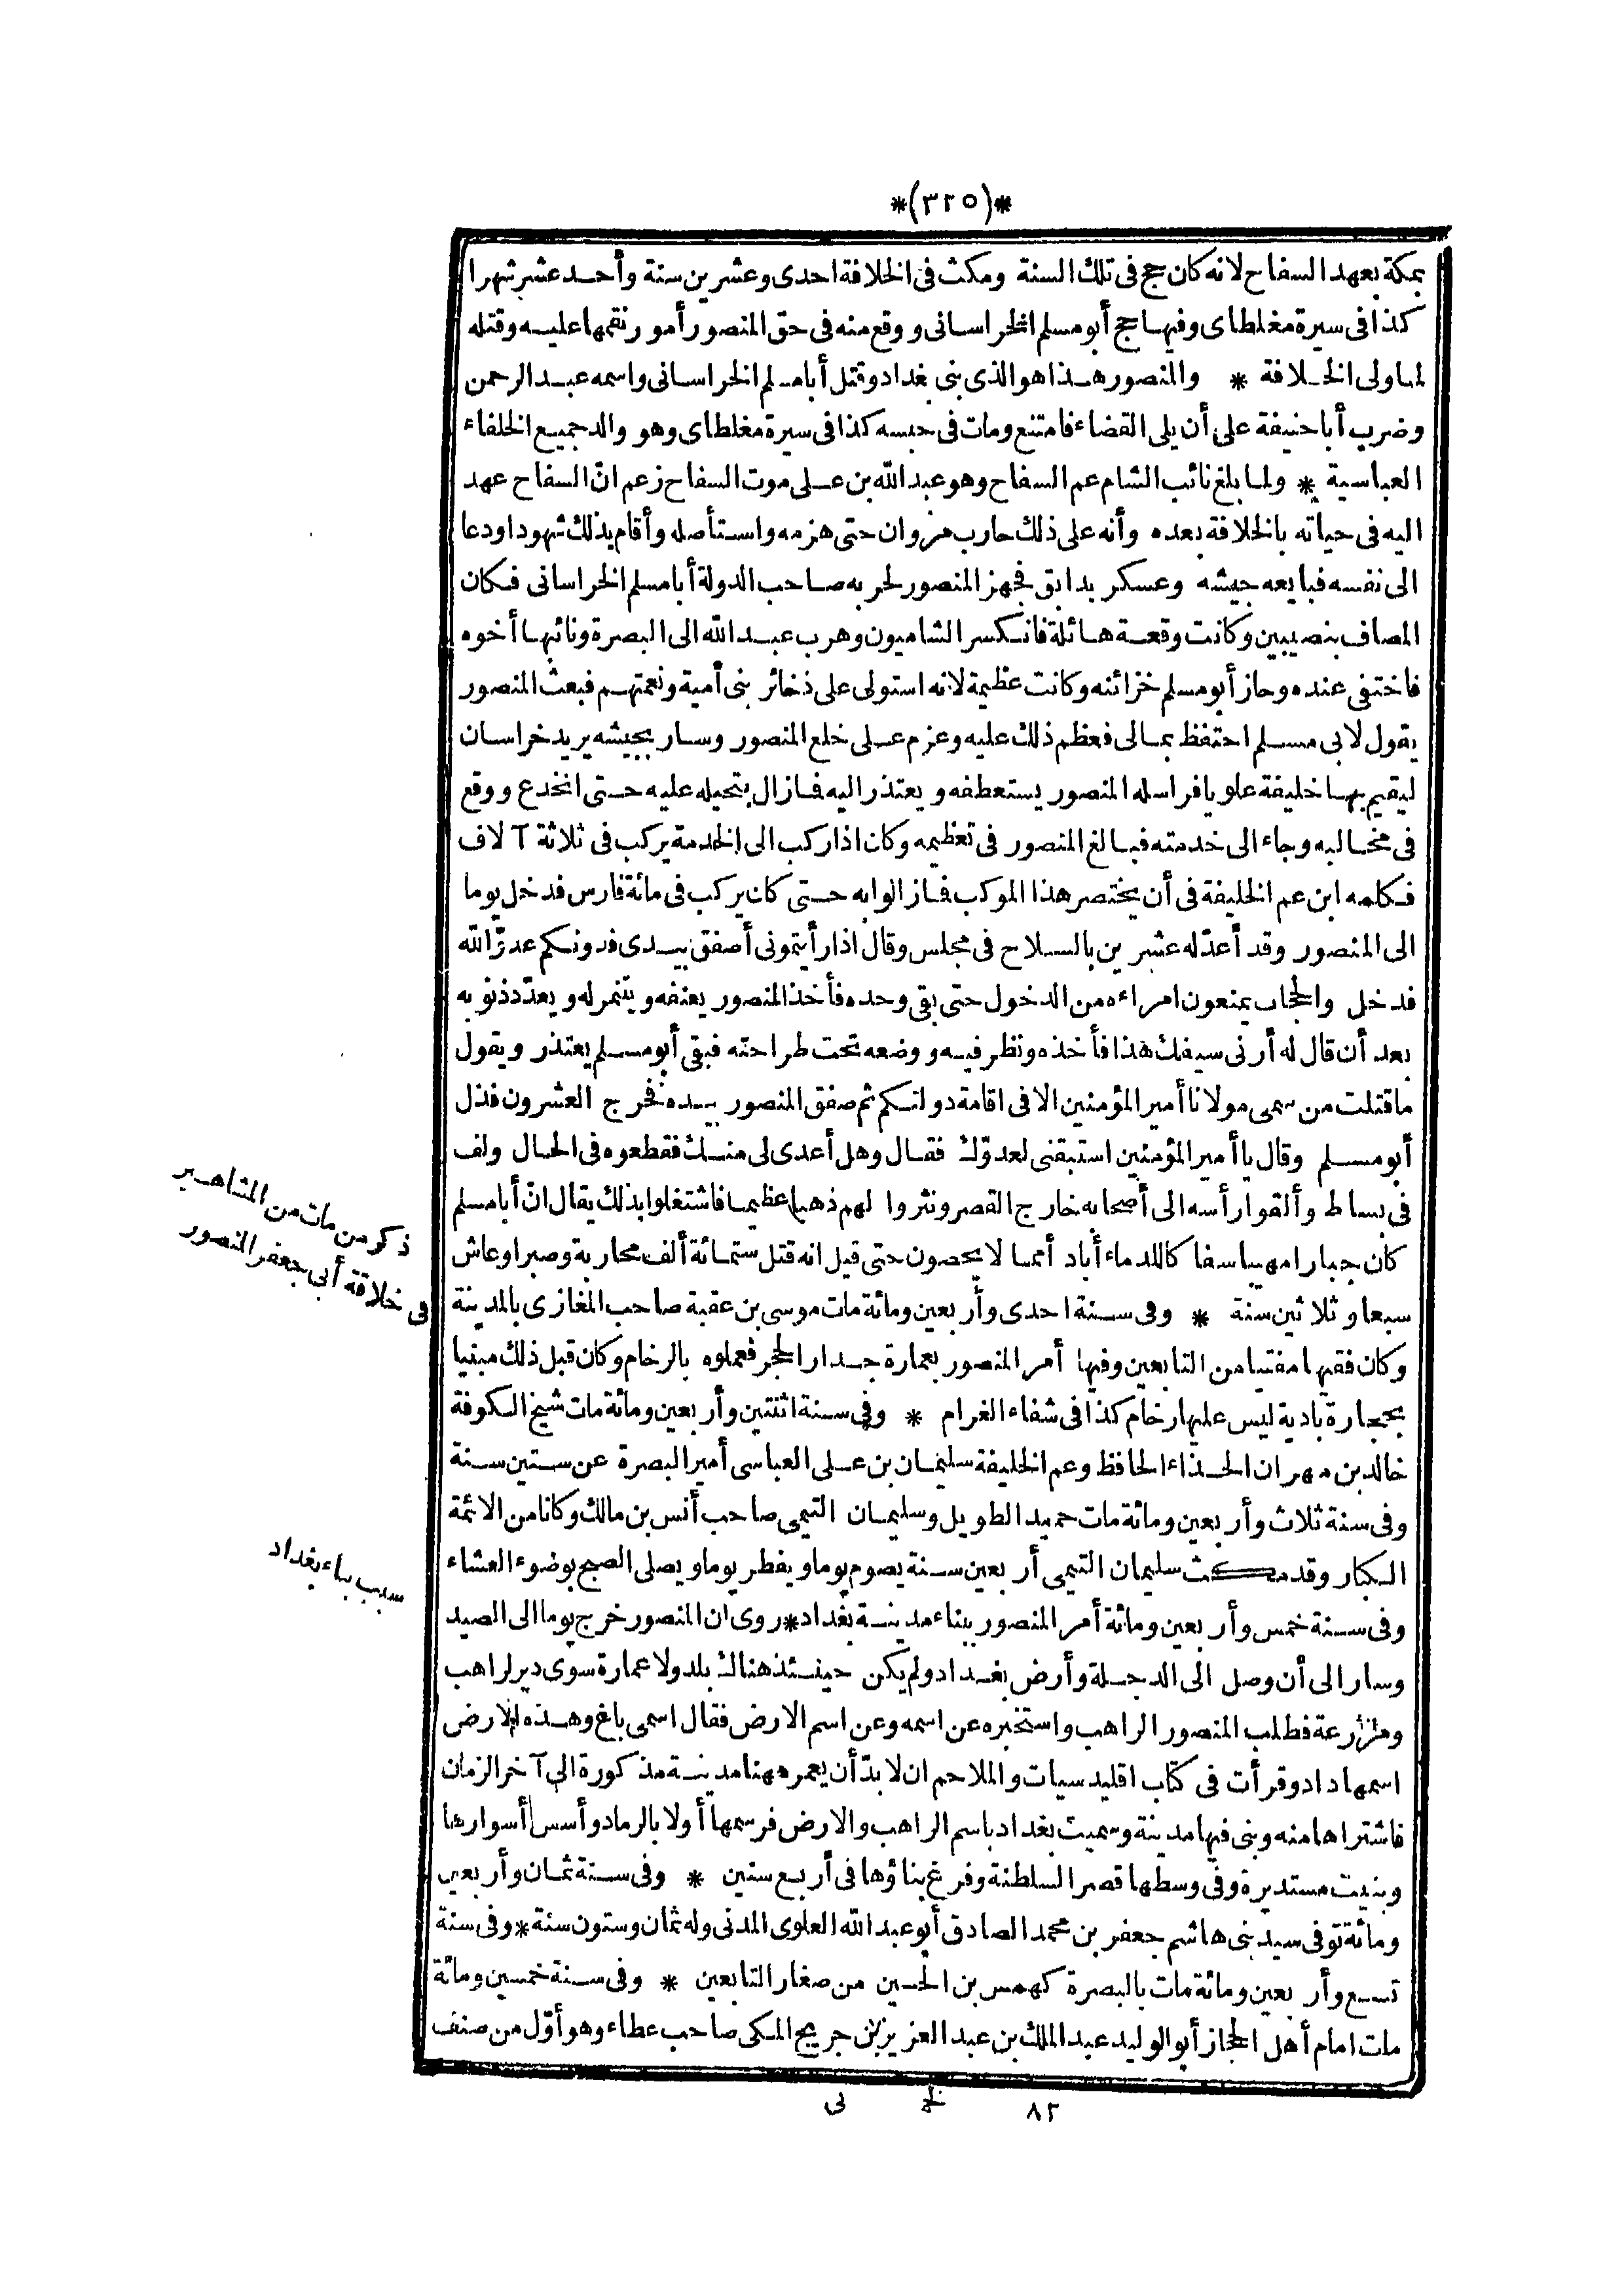 *(٣٢٥)*
بمكة بعهد السفاح لانه كان حج فى تلك السنة ومكث فى الخلافة احدى وعشرين سنة وأحد عشر شهرا
كذا فى سيرة مغلطاى وفيها حج أبو مسلم الخراسانى ووقع منه فى حق المنصور أمور نقمها عليه وقتله
لما ولى الخلافة * والمنصور هذا هو الذى بنى بغداد وقتل أبا مسلم الخراسانى واسمه عبد الرحمن
وضرب أبا حنيفة على أن يلى القضاء فامتنع ومات فى حبسه كذا فى سيرة مغلطاى وهو والد جميع الخلفاء
العباسية * ولما بلغ نائب الشام عم السفاح وهو عبد الله بن على موت السفاح زعم انّ السفاح عهد
اليه فى حياته بالخلافة بعده وأنه على ذلك حارب مروان حتى هزمه واستأصله وأقام بذلك شهودا ودعا
الى نفسه فبايعه جيشه وعسكر بدابق فجهز المنصور لحربه صاحب الدولة أبا مسلم الخراسانى فكان
المصاف بنصيبين وكانت وقعة هائلة فانكسر الشاميون وهرب عبد الله الى البصرة ونائبها أخوه
فاختفى عنده وحاز أبو مسلم خزائنه وكانت عظيمة لانه استولى على ذخائر بنى أمية ونعمتهم فبعث المنصور
يقول لابى مسلم احتفظ بمالى فعظم ذلك عليه وعزم على خلع المنصور وسار بجيشه يريد خراسان
ليقيم بها خليفة علويا فراسله المنصور يستعطفه ويعتذر اليه فمازال يتحيله عليه حتى انخدع ووقع
فى مخاليبه وجاء الى خدمته فبالغ المنصور فى تعظيمه وكان اذا ركب الى الخدمة يركب فى ثلاثة آلاف
فكلمه ابن عم الخليفة فى أن يختصر هذا الموكب فمازالوا به حتى كان يركب فى مائة فارس فدخل يوما
الى المنصور وقد أعدّ له عشرين بالسلاح فى مجلس وقال اذا رأيتمونى أصفق بيدى فدونكم عدوّ الله
فدخل والحجاب يمنعون امراءه من الدخول حتى بقى وحده فأخذ المنصور يعنفه ويتنمر له ويعدّد ذنوبه
بعد أن قال له أرنى سيفك هذا فأخذه ونظر فيه ووضعه تحت طراحته فبقى أبو مسلم يعتذر ويقول
ما قتلت من سمى مولانا أمير المؤمنين الا فى اقامة دولتكم ثم صفق المنصور بيده فخرج العشرون فذل
أبو مسلم وقال يا أمير المؤمنين استبقنى لعدوّك فقال وهل أعدى لى منك فقطعوه فى الحال ولف
فى بساط وألقوا رأسه الى أصحابه خارج القصر ونثروا لهم ذهبا عظيما فاشتغلوا بذلك يقال انّ أبا مسلم
كان جبارا مهيبا سفاكا للدماء أباد أمما لا يحصون حتى قيل انه قتل ستمائة ألف محاربة وصبرا وعاش
سبعا وثلاثين سنة * وفى سنة احدى وأربعين ومائة مات موسى بن عقبة صاحب المغازى بالمدينة
وكان فقيها مفتيا من التابعين وفيها أمر المنصور بعمارة جدار الحجر فعملوه بالرخام وكان قبل ذلك مبنيا
بحجارة بادية ليس عليها رخام كذا فى شفاء الغرام * وفى سنة اثنتين وأربعين ومائة مات شيخ الكوفة
خالد بن مهران الحذاء الحافظ وعم الخليفة سليمان بن على العباسى أمير البصرة عن ستين سنة
وفى سنة ثلاث وأربعين ومائة مات حميد الطويل وسليمان التيمى صاحب أنس بن مالك وكانا من الائمة
الكبار وقد مكث سليمان التيمى أربعين سنة يصوم يوما ويفطر يوما ويصلى الصبح بوضوء العشاء
وفى سنة خمس وأربعين ومائة أمر المنصور ببناء مدينة بغداد * روى ان المنصور خرج يوما الى الصيد
وسار الى أن وصل الى الدجلة وأرض بغداد ولم يكن حينئذ هناك بلد ولا عمارة سوى دير لراهب
ومزرعة فطلب المنصور الراهب واستخبره عن اسمه وعن اسم الارض فقال اسمى باغ وهذه الارض
اسمها داد وقرأت فى كتاب اقليدسيات والملاحم ان لا بدّ أن يعمر ههنا مدينة مذكورة الى آخر الزمان
فاشتراها منه وبنى فيها مدينة وسميت بغداد باسم الراهب والارض فرسمها أولا بالرماد وأسس أسوارها
وبنيت مستديرة وفى وسطها قصر السلطنة وفرغ بناؤها فى أربع سنين * وفى سنة ثمان وأربعين
ومائة توفى سيد بنى هاشم جعفر بن محمد الصادق أبو عبد الله العلوى المدنى وله ثمان وستون سنة * وفى سنة
تسع وأربعين ومائة مات بالبصرة كهمس بن الحسين من صغار التابعين * وفى سنة خمسين ومائة
مات امام أهل الحجاز أبو الوليد عبد الملك بن عبد العزيز بن جريج المكى صاحب عطاء وهو أوّل من صنف
٨٢ خ نى
ذكر من مات من المشاهير
فى خلافة أبى جعفر المنصور
سبب بناء بغداد